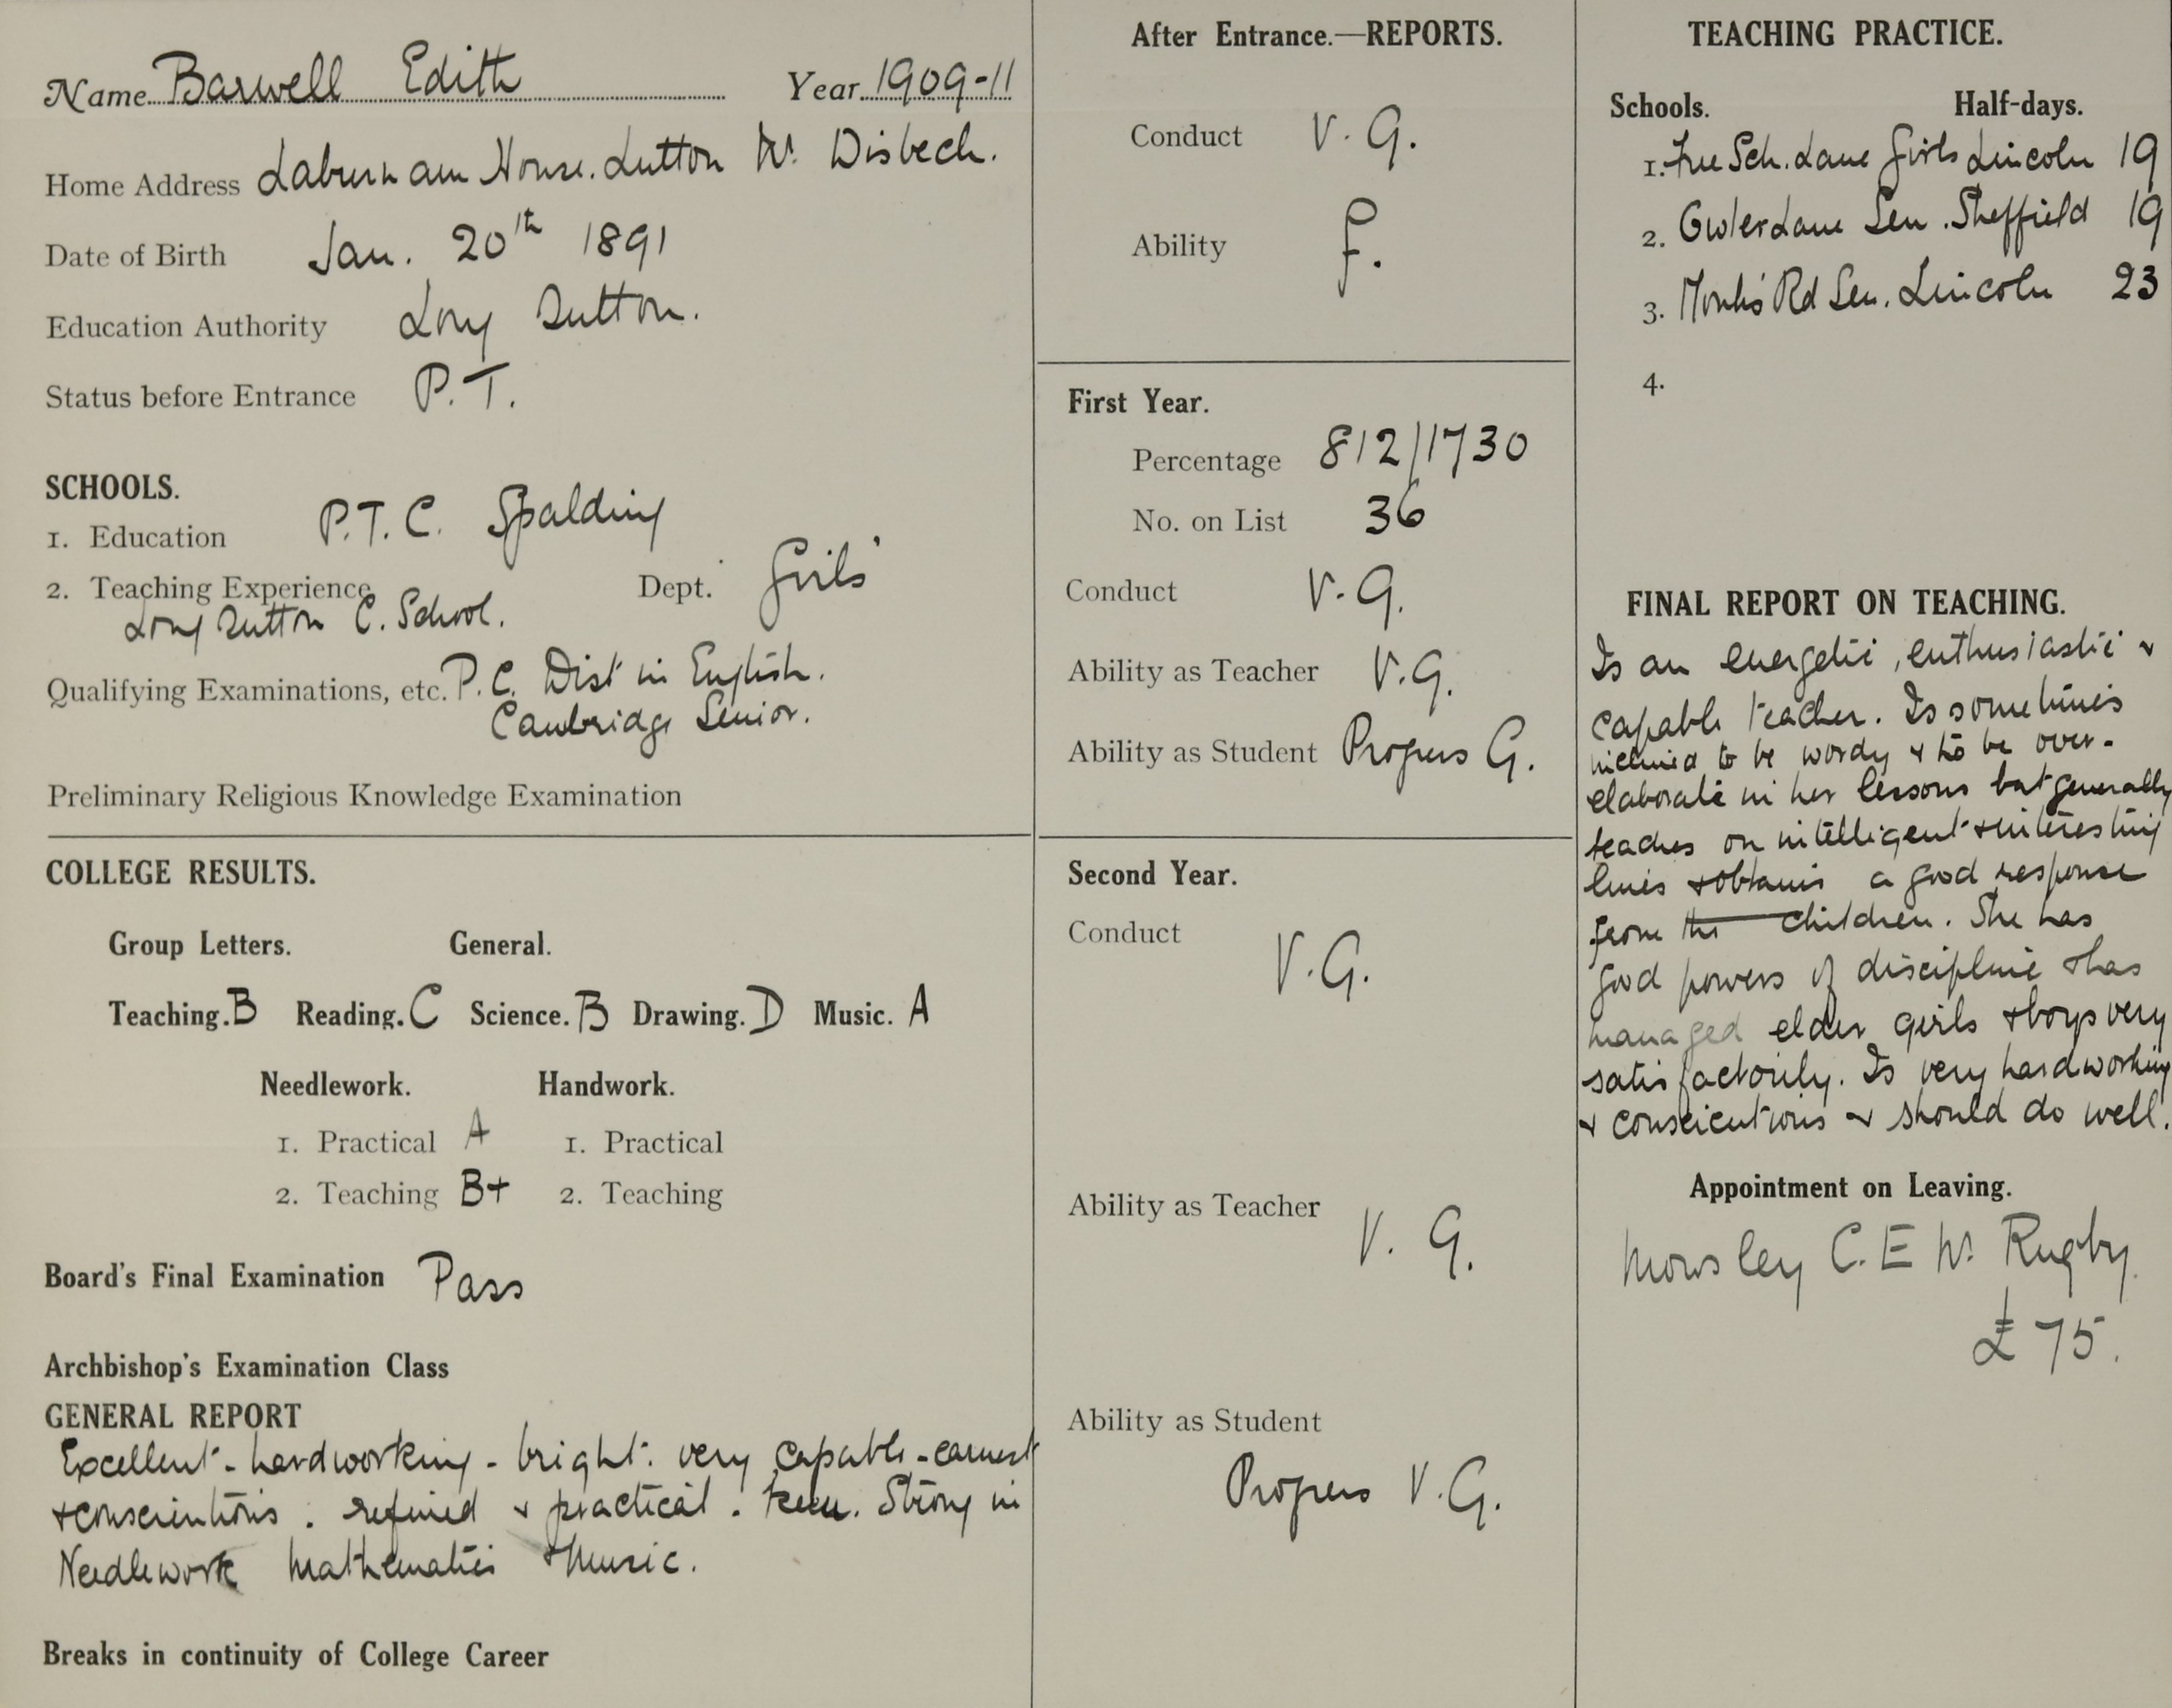 Name Barwell Edith Year 1909-11
Home Address Laburnam House. Sutton Nr. Wisbech.
Date of Birth Jan. 20th 1891
Education Authority Long Sutton.
Status before Entrance P.T.
SCHOOLS.
1. Education P.T.C. Spalding
2. Teaching Experience Dept. Girls'
Long Sutton C. School.
Qualifying Examinations, etc. P.C. Dist in English.
Cambridge Senior.
Preliminary Religious Knowledge Examination
COLLEGE RESULTS.
Group Letters. General.
Teaching. B Reading. C Science. B Drawing. D Music. A
Needlework. Handwork.
1. Practical A 1. Practical
2. Teaching B+ 2. Teaching
Board's Final Examination Pass
Archbishop's Examination Class
GENERAL REPORT
Excellent - hardworking - bright: very capable - earnest
& conscientious : refined & practical. Keen. Strong in
Needlework Mathematics & Music.
Breaks in continuity of College Career
After Entrance.—REPORTS.
Conduct V.G.
Ability F.
First Year.
Percentage 812/1730
No. on List 36
Conduct V.G.
Ability as Teacher V.G.
Ability as Student Progress G.
Second Year.
Conduct V.G.
Ability as Teacher V.G.
Ability as Student
Progress V.G.
TEACHING PRACTICE.
Schools. Half-days.
1. Free Sch. Lane Girls Lincoln 19
2. Owler Lane Sen. Sheffield 19
3. Monks' Rd Sen. Lincoln 23
4.
FINAL REPORT ON TEACHING.
Is an energetic, enthusiastic &
capable teacher. Is sometimes
inclined to be wordy & to be over-
elaborate in her lessons but generally
teaches on intelligent & interesting
lines & obtains a good response
from the children. She has
good powers of discipline & has
managed elder girls & boys very
satisfactorily. Is very hardworking
& conscientious & should do well.
Appointment on Leaving.
Mowsley C.E. Nr. Rugby.
£75.